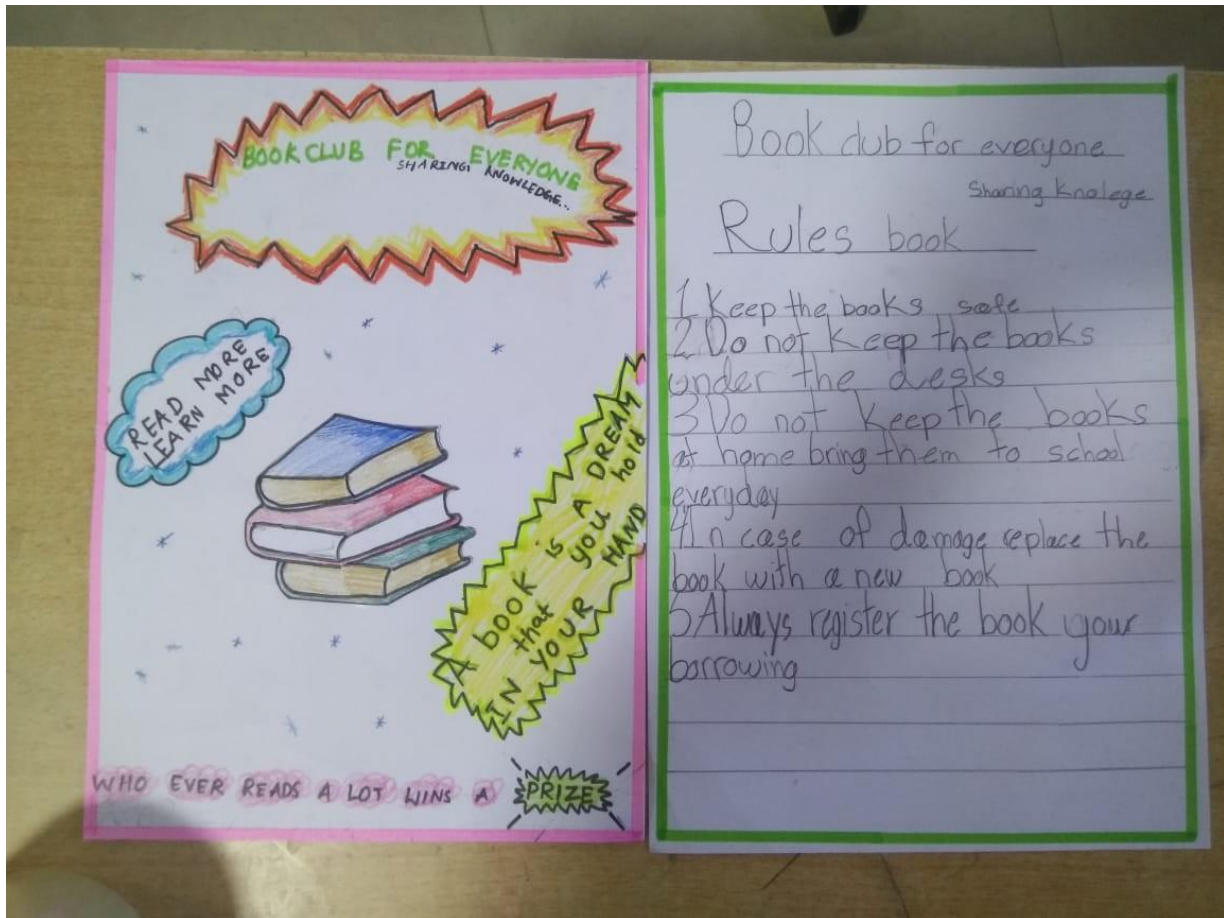 BOOK CLUB FOR EVERYONE
SHARING KNOWLEDGE...
READ MORE
LEARN MORE
A book is A DREAM
that you hold
IN YOUR HAND
WHO EVER READS A LOT WINS A PRIZE
Book club for everyone
Sharing knolege
Rules book
1 Keep the books safe
2 Do not keep the books
under the desks
3 Do not keep the books
at home bring them to school
everyday
4 In case of damage replace the
book with a new book
5 Always register the book your
borrowing